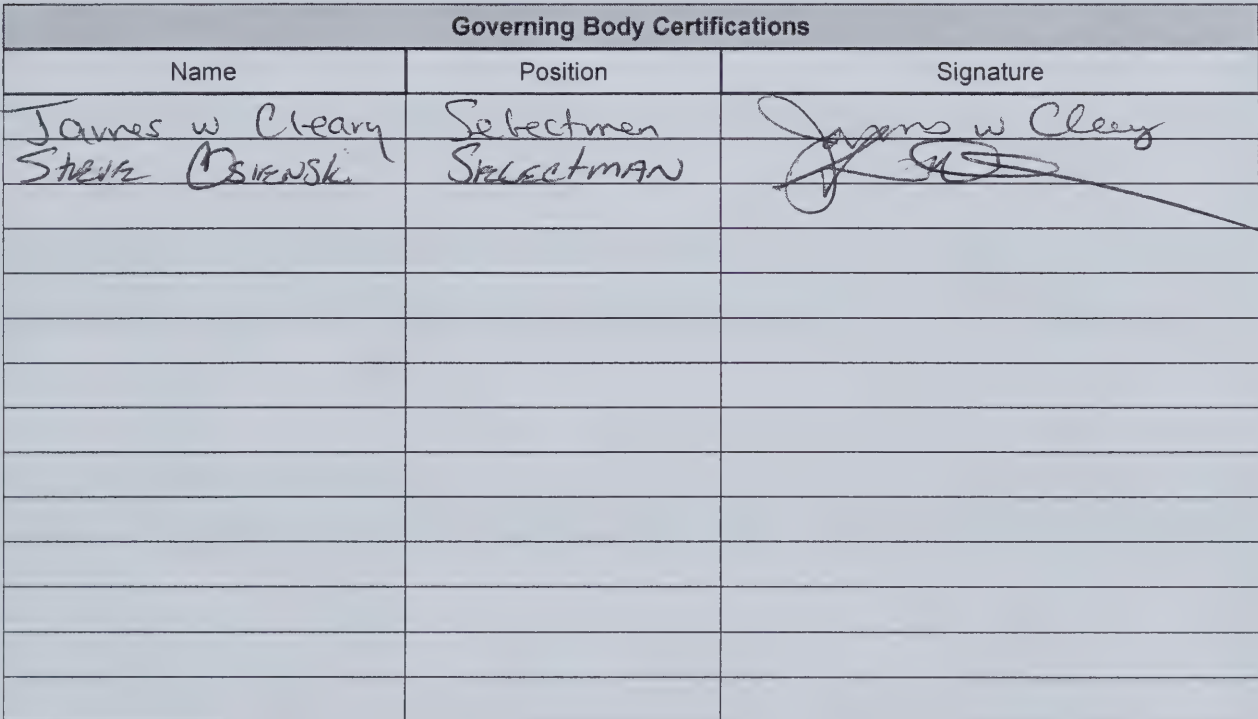 Governing Body Certifications
Name Position Signature
James w Cleary Selectmen James w Cleary
Steve Osienski Selectman